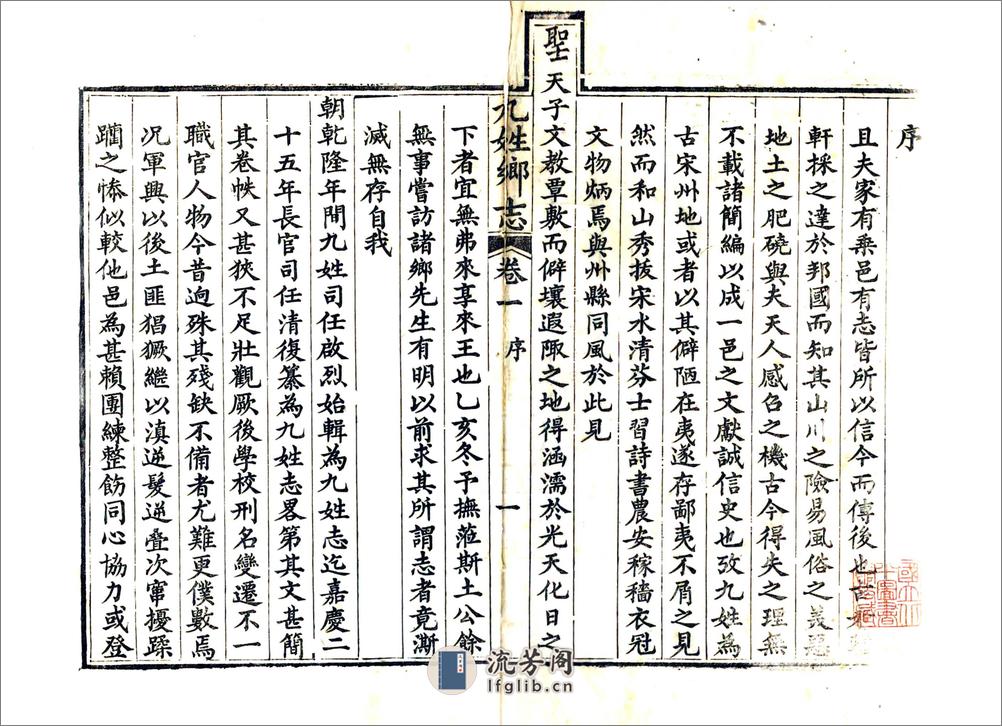 序
且夫家有乘邑有志皆所以信今而傳後也古
軒採之達於邦國而知其山川之險易風俗之美惡
地土之肥磽與夫天人感召之機古今得失之理無
不載諸簡編以成一邑之文獻誠信史也攷九姓為
古宋州地或者以其僻陋在夷遂存鄙夷不屑之見
然而和山秀拔宋水清芬士習詩書農安稼穡衣冠
文物炳焉與州縣同風於此見
聖天子文教覃敷而僻壤遐陬之地得涵濡於光天化日之
九姓鄉志 卷一 序 一
下者宜無弗來享來王也乙亥冬予撫蒞斯土公餘
無事嘗訪諸鄉先生有明以前求其所謂志者竟澌
滅無存自我
朝乾隆年間九姓司任啟烈始輯為九姓志迄嘉慶二
十五年長官司任清復纂為九姓志畧第其文甚簡
其卷帙又甚狹不足壯觀厥後學校刑名變遷不一
職官人物今昔逈殊其殘缺不備者尤難更僕數焉
况軍興以後土匪猖獗繼以滇逆髮逆叠次竄擾蹂
躪之慘似較他邑為甚賴團練整飭同心協力或登
流芳阁
lfglib.cn